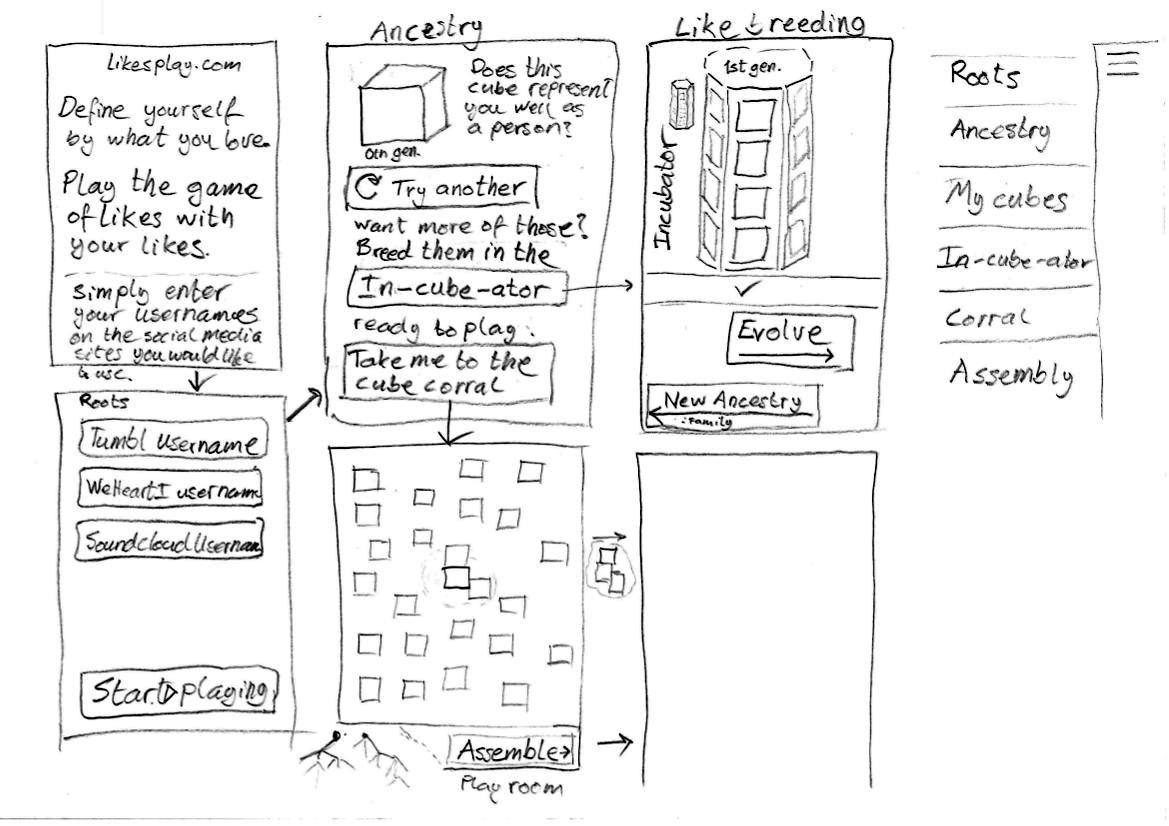 likesplay.com
Define yourself
by what you love.
Play the game
of likes with
your likes.
Simply enter
your usernames
on the social media
sites you would like
to use.
Roots
Tumbl username
WeHeartI username
Soundcloud Usernam
Start playing
Ancestry
Does this
cube represent
you well as
a person?
0th gen.
Try another
want more of those?
Breed them in the
In-cube-ator
ready to play:
Take me to the
cube corral
Assemble
Play room
Like breeding
1st gen.
Incubator
Evolve
New Ancestry
: Family
Roots
Ancestry
My cubes
In-cube-ator
Corral
Assembly